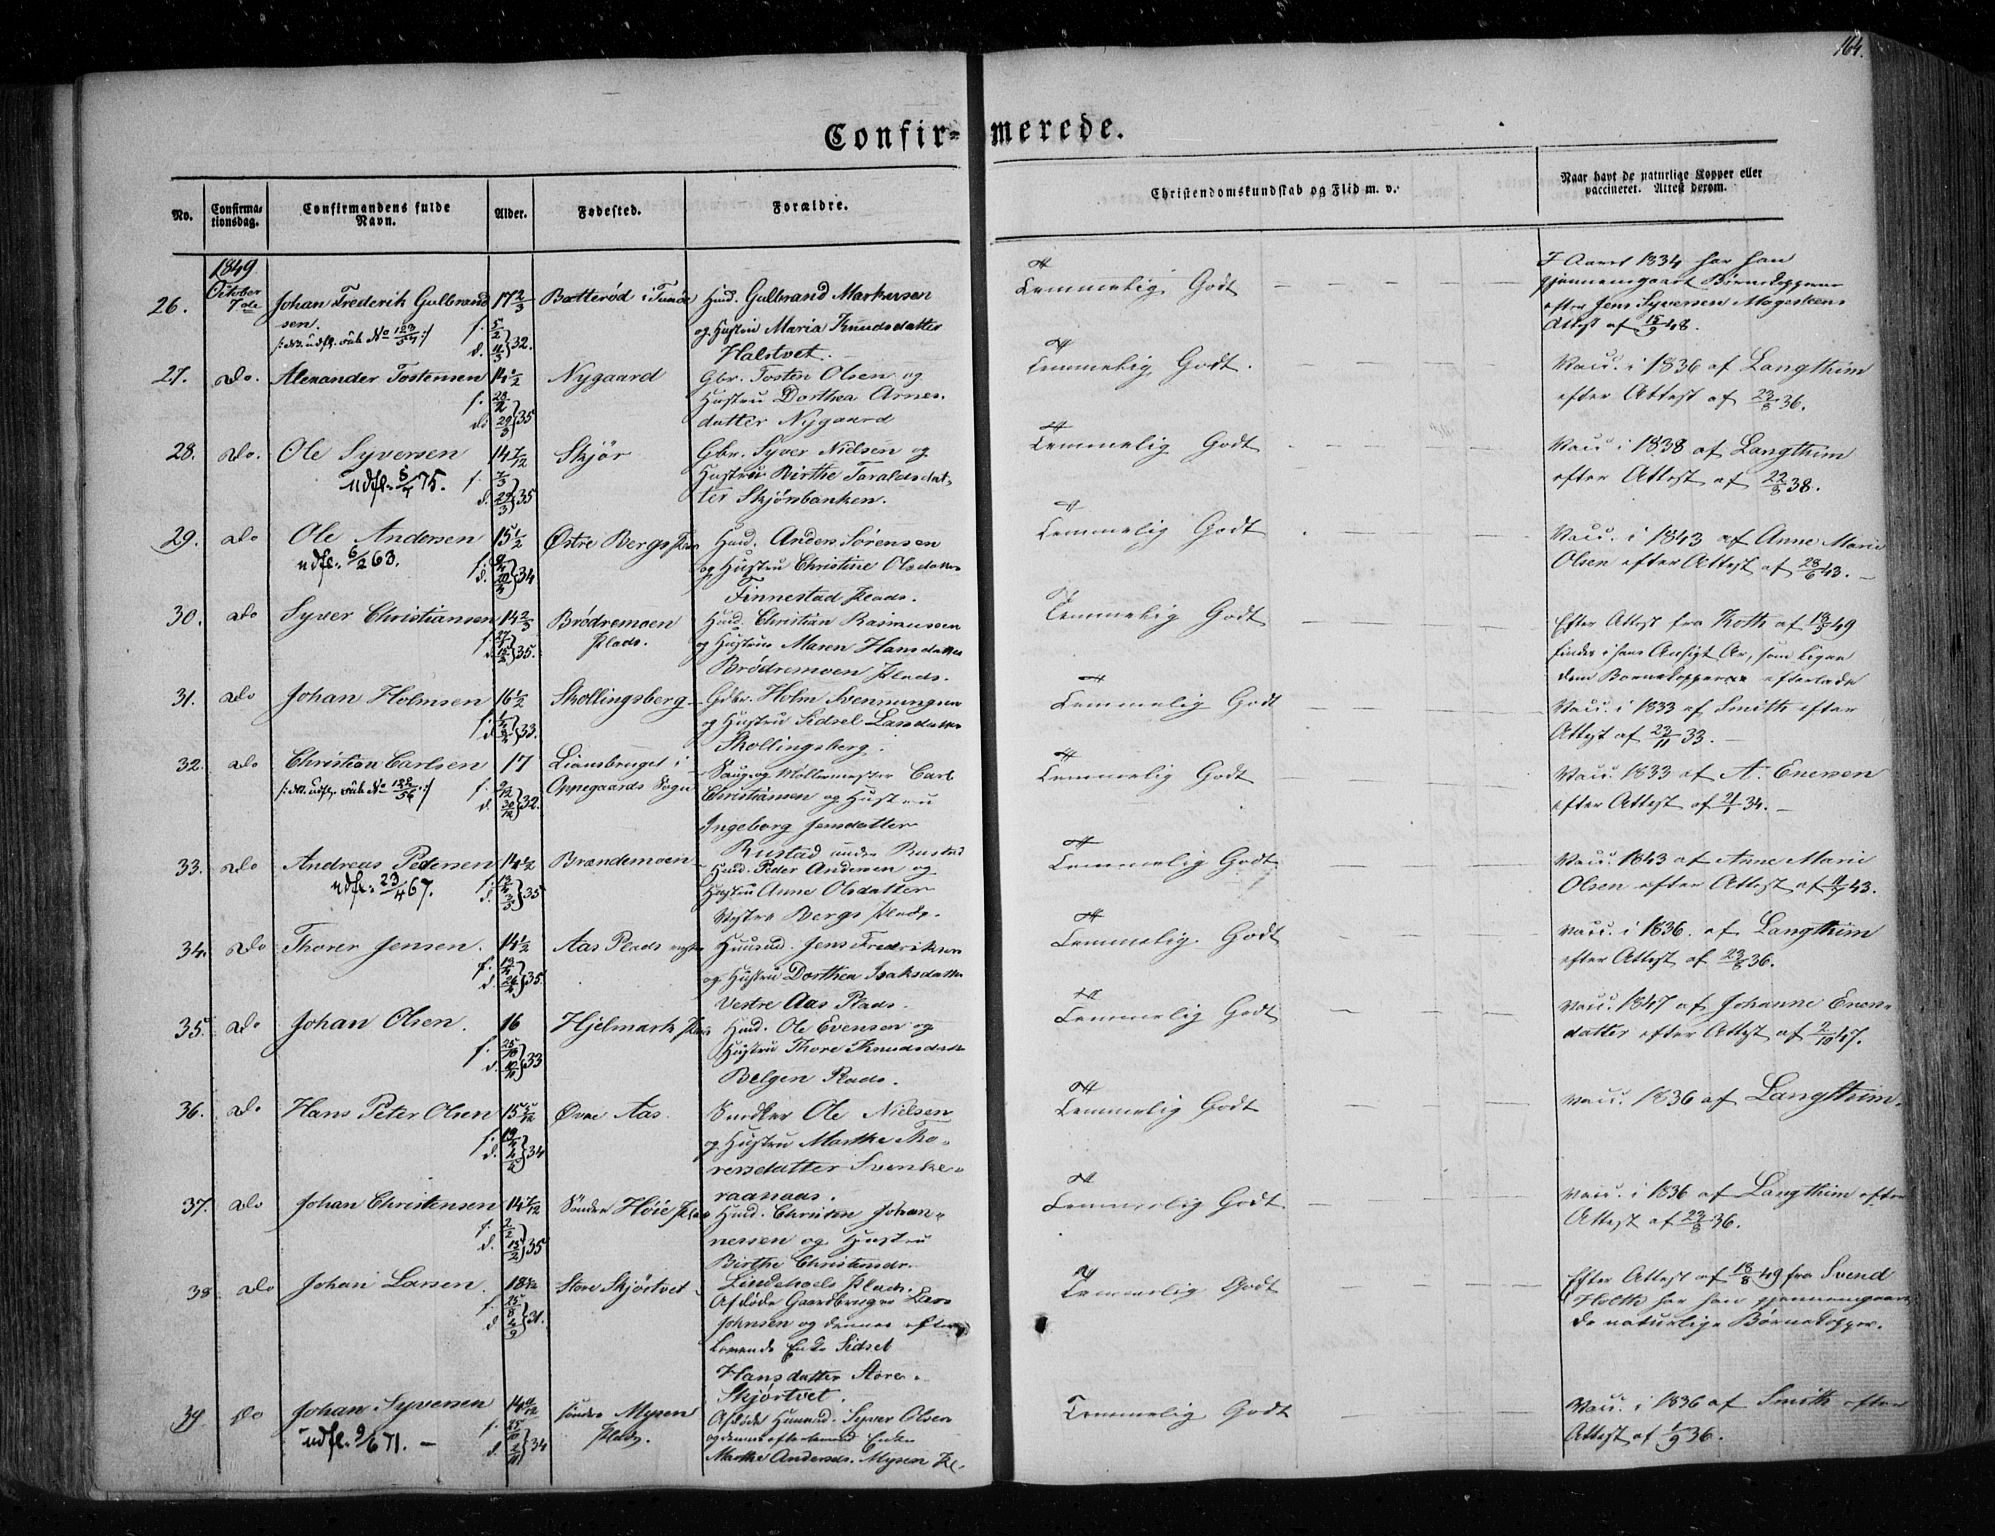 164.
Confirmerede.
No.
Confirma-
tionsdag.
Confirmandens fulde
Navn.
Alder.
Fødested.
Forældre.
Christendomskundskab og Flid m. v.
Naar havt de naturlige Kopper eller
vaccineret. Attest derom.
1849
October
7de
26. Johan Frederik Gulbrand 17 2/3 Batterød i Tunøe Huusd. Gulbrand Markussen Temmelig Godt
sen. f. 5/2 og Hustru Maria Knudsdatter
d. 11/3 } 32. Halstvet.
I Aaret 1834 har han
gjennemgaaet Børnekopperne
efter Jens Syversen Magesteens
Attest af 15/9 48.
27. Do. Alexander Tostensen 14 1/2 Nygaard Gbr. Tosten Olsen og Temmelig Godt. Vacc. i 1836 af Langthim
Hustru Dorthea Arnes- efter Attest af 23/8 36.
d. 29/3 } 35 datter Nygaard
28. Do. Ole Syversen 14 7/12 Skjør Gbr. Syver Nielsen og Temmelig Godt Vacc. i 1838 af Langthim
udfl. 5/7 75. Hustru Birthe Taraldsdat- efter Attest af 22/8 38.
d. 29/3 } 35 ter Skjørsbakken.
29. Do Ole Andersen 15 1/2 Østre Bergs Plads Huusd. Anders Sørensen Temmelig Godt Vacc. i 1843 af Anne Marie
udfl. 6/2 63. og Hustru Christine Olsdatter Olsen efter Attest af 28/6 43.
34 Finnestad Plads.
30. Do Syver Christiansen 14 2/3 Brødremoen Huusd. Christian Rasmussen Temmelig Godt Efter Attest fra Holth af 49
Plads. og Hustrue Maren Hansdatter findes i hans Ansigt Ar, som ligne
35. Brødremoen Plads. dem Børnekopperne efterlade
31. Do Johan Holmsen 16 1/2 Skollingsberg Gdbr. Holm Svennungsen Temmelig Godt Vacc. i 1833 af Smith efter
33. og Hustru Sidsel Larsdatter Attest af 23/11 33.
Skollingsberg.
32. Do Christian Carlsen 17 Liansbruget i Saug og Møllermester Carl Temmelig Godt Vacc. 1833 af A. Enersen
32. Oppegaards Sogn Christiansen og Hustru efter Attest af 34.
Ingeborg Jensdatter
Rustad under Rustad
33. Do Andreas Pedersen 14 1/2 Brandemoen Huusd. Peder Andersen og Temmelig Godt Vacc. 1843 af Anne Marie
udfl. 23/4 67. 35 Hustru Anne Olsdatter Olsen efter Attest af 43.
Vestre Bergs Plads.
34. Do Thorer Jensen. 14 1/2 Aas Plads vestre Huusd. Jens Fredriksen Temmelig Godt Vacc. i 1836. af Langthim
35. og Hustru Dorthea Isaksdatter efter Attest af 23/8 36.
Vestre Aas Plads.
35. Do Johan Olsen. 16 Hjelmark Plads Huusd. Ole Evensen og Temmelig Godt Vacc. 1847 af Johanne Eners-
f. 25/10 Hustru Thore Knudsdatter datter efter Attest af 2/10 47.
d. 10/11 } 33 Belgen Plads.
36. Do Hans Peter Olsen 15 5/12 Øvre Aas. Snedker Ole Nielsen Temmelig Godt Vacc. 1836 af Langthim.
34 og Hustru Marthe Tho-
rersdatter Svenke-
raanaas.
37. Do Johan Christensen 14 7/12 Søndre Høie Plads Huusd. Christen Johan- Temmelig Godt Vacc. i 1836 af Langthim efter
f. 2/2 nessen og Hustru Attest af 23/8 36.
d. 15/2 } 35 Birthe Christensdr.
Lindehaels Plads.
38 Do Johan Larsen. 18 Store Skjørtvet Afdøde Gaardbruger Lars Temmelig Godt Efter Attest af 18/8 49 fra Svend
f. 25/8 Johnsen og dennes efter- Holth har han gjennemgaaet
d. 4/9 } 31. levende Enke Sidsel de naturlige Børnekopper.
Hansdatter Store
Skjørtvet.
39 Do Johan Syversen 14 11/12 søndre Mysen Afdøde Huusmd. Syver Olsen Temmelig Godt Vacc. i 1836 af Smith efter
udfl. 9/6 71. f. 25/10 Plads. og dennes efterlevende Enke Attest af 1/9 36.
d. 2/11 } 34 Marthe Andersdr. Mysen Pl.